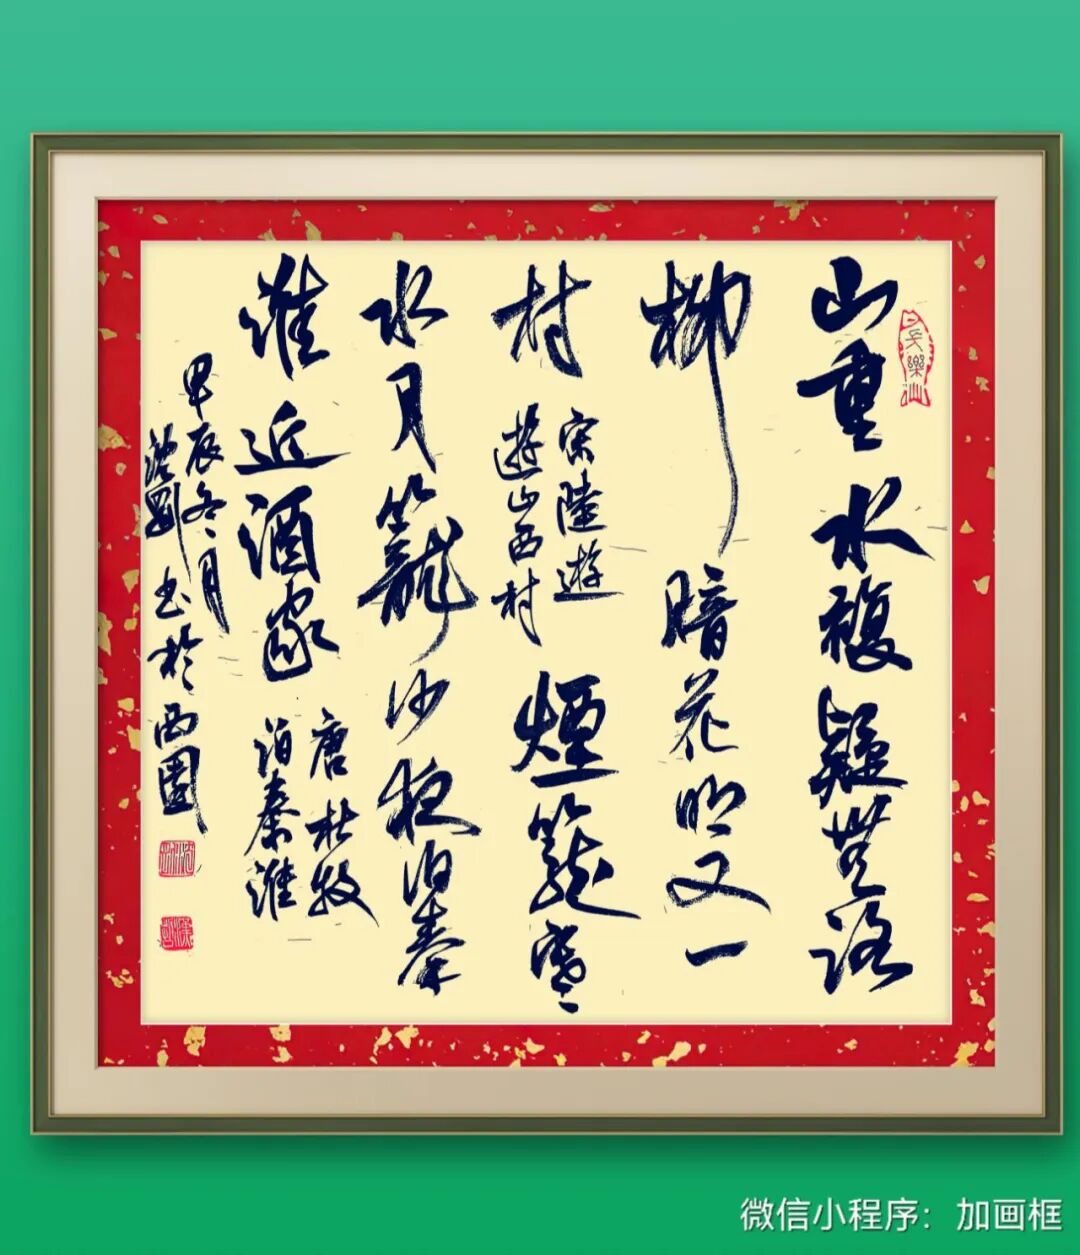 山重水複疑無路
柳暗花明又一
村
宋陸遊
遊山西村
煙籠寒
水月籠沙夜泊秦
淮近酒家
唐杜牧
泊秦淮
甲辰冬月
书於西園
微信小程序：加画框